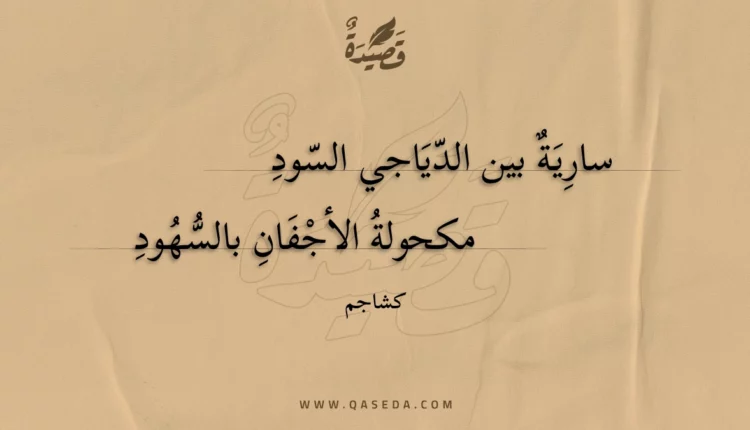 قَصِيدَةٌ
سارِيَةٌ بين الدّيَاجي السّودِ
مكحولةُ الأجْفَانِ بالسُّهُودِ
كشاجم
WWW.QASEDA.COM